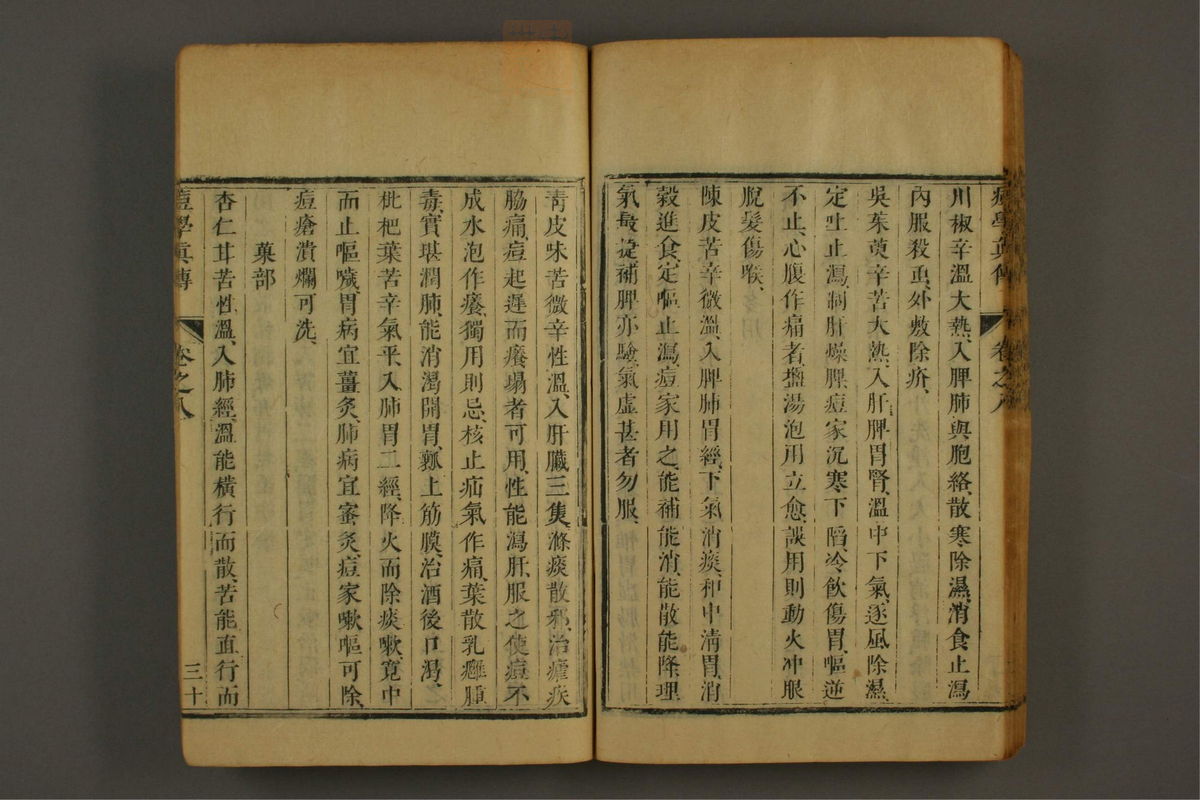 痘學眞傳 卷之八
川椒辛溫大熱、入脾肺與胞絡、散寒除濕、消食止瀉
內服殺虫、外敷除疥、
吳茱萸辛苦大熱、入肝脾胃腎、溫中下氣、逐風除濕、
定吐止瀉、制肝燥脾、痘家沉寒下陷、冷飲傷胃、嘔逆
不止、心腹作痛者、塩湯泡用立愈、誤用則動火冲眼
脫髮傷喉、
陳皮苦辛微溫、入脾肺胃經、下氣消痰、和中淸胃、消
穀進食、定嘔止瀉、痘家用之、能補能消、能散能降、理
氣最捷、補脾亦驗、氣虛甚者勿服、
靑皮味苦微辛性溫、入肝臟三隻、滌痰散邪、治瘧疾
脇痛、痘起遲而癢塌者可用、性能瀉肝、服之使痘不
成水泡作癢、獨用則忌、核止疝氣作痛、葉散乳癰腫
毒、實堪潤肺、能消渴開胃、瓤上筋膜、治酒後口渴、
枇杷葉苦辛氣平、入肺胃二經、降火而除痰嗽、寛中
而止嘔噦、胃病宜薑炙、肺病宜蜜炙、痘家嗽嘔可除、
痘瘡潰爛可洗、
菓部
杏仁甘苦性溫、入肺經、溫能橫行而散、苦能直行而
痘學眞傳 卷之八 三十